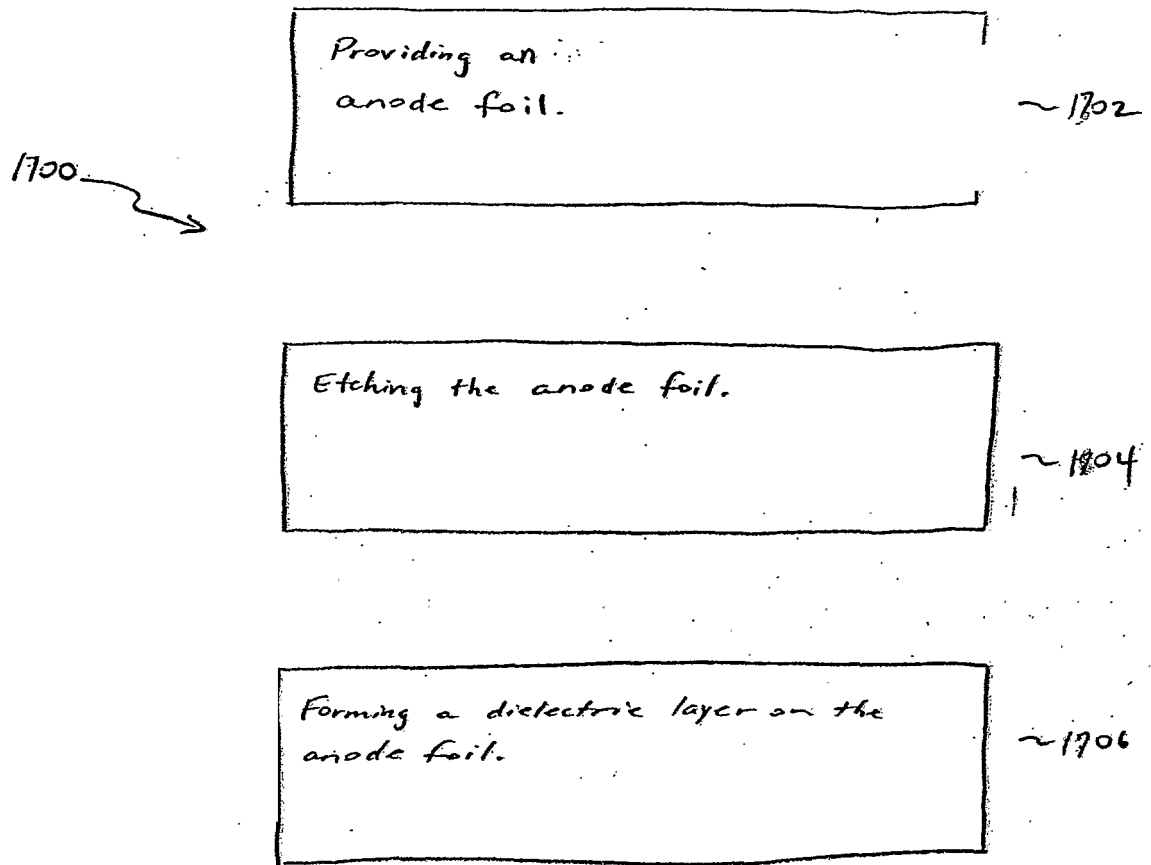 Providing an
anode foil.
~1702
1700
Etching the anode foil.
~1704
Forming a dielectric layer on the
anode foil.
~1706